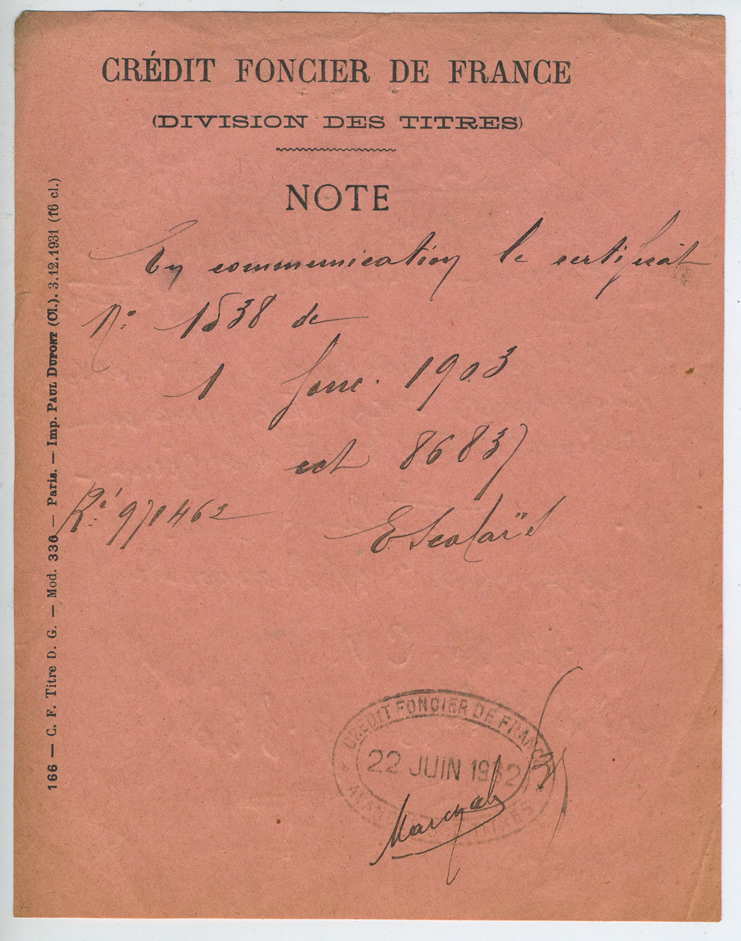 CRÉDIT FONCIER DE FRANCE
(DIVISION DES TITRES)
NOTE
En communication le certificat
N° 1538 de
1 fonc. 1903
ect 86837
Ré: 971462
Escolaïs
CRÉDIT FONCIER DE FRANCE
22 JUIN 1932
TITRES
166 — C. F. Titre D. G. — Mod. 336 — Paris. — Imp. PAUL DUPONT (Cl.). 3.12.1931 (f6 cl.)